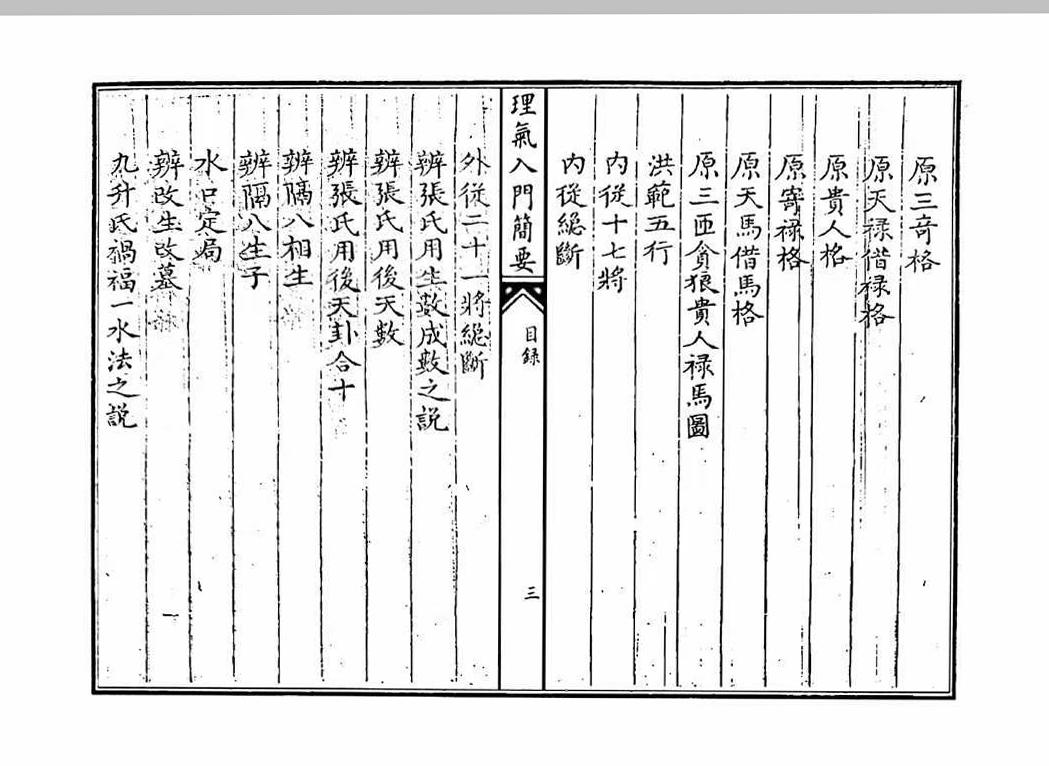 原三奇格
原天禄借禄格
原貴人格
原寄禄格
原天馬借馬格
原三匝貪狼貴人禄馬圖
洪範五行
內從十七將
內從總斷
理氣入門簡要
目録
三
外從二十一將總斷
辨張氏用生數成數之説
辨張氏用後天數
辨張氏用後天卦合十
辨隔八相生
辨隔八生子
水口定局
辨改生改墓
九升氏禍福一水法之説